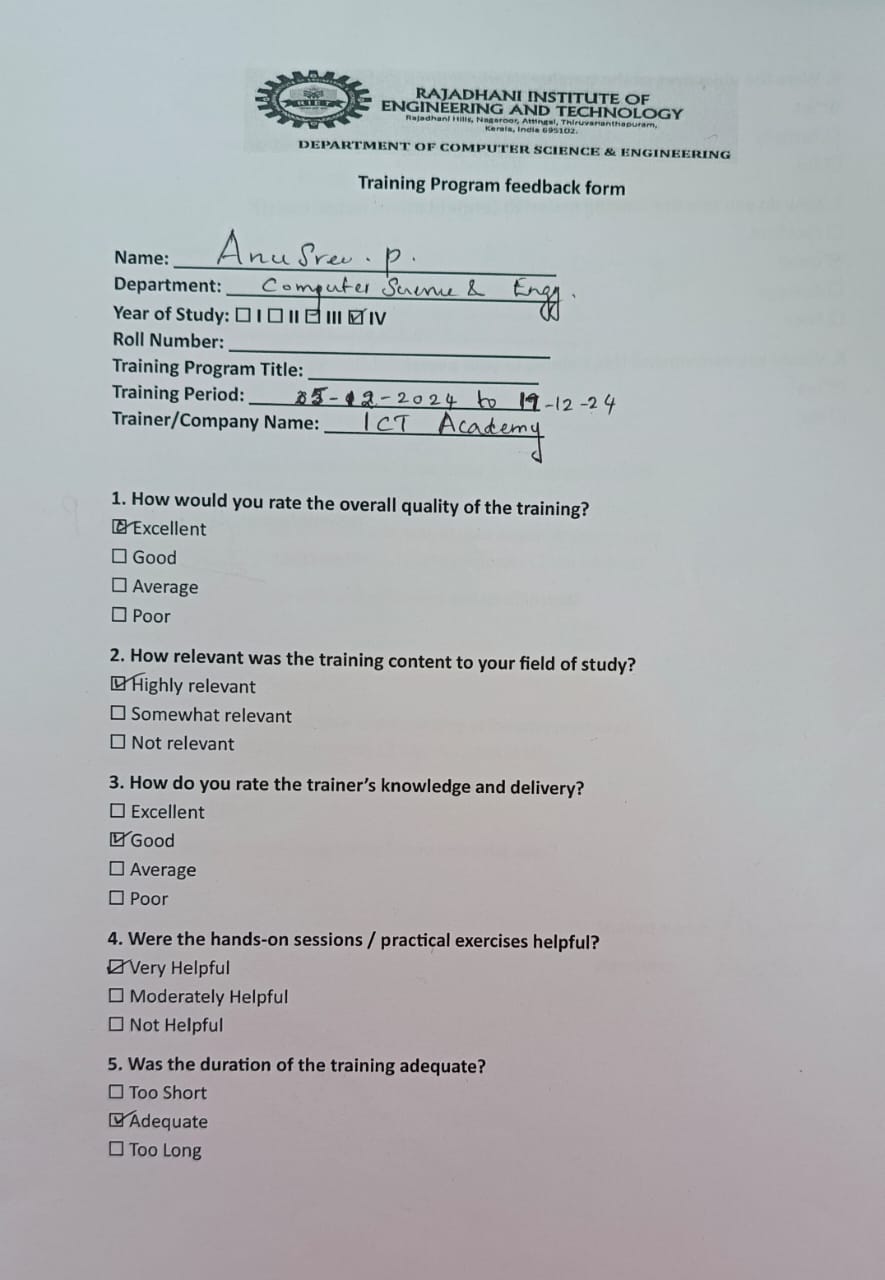 RIET
RAJADHANI INSTITUTE OF
ENGINEERING AND TECHNOLOGY
Rajadhani Hills, Nagaroor, Attingal, Thiruvananthapuram,
Kerala, India 695102.
DEPARTMENT OF COMPUTER SCIENCE & ENGINEERING
Training Program feedback form
Name: Anu Sree . P.
Department: Computer Science & Engg.
Year of Study: ☐ I ☐ II ☐ III ☑ IV
Roll Number:
Training Program Title:
Training Period: 05-12-2024 to 19-12-24
Trainer/Company Name: ICT Academy
1. How would you rate the overall quality of the training?
☑ Excellent
☐ Good
☐ Average
☐ Poor
2. How relevant was the training content to your field of study?
☑ Highly relevant
☐ Somewhat relevant
☐ Not relevant
3. How do you rate the trainer’s knowledge and delivery?
☐ Excellent
☑ Good
☐ Average
☐ Poor
4. Were the hands-on sessions / practical exercises helpful?
☑ Very Helpful
☐ Moderately Helpful
☐ Not Helpful
5. Was the duration of the training adequate?
☐ Too Short
☑ Adequate
☐ Too Long